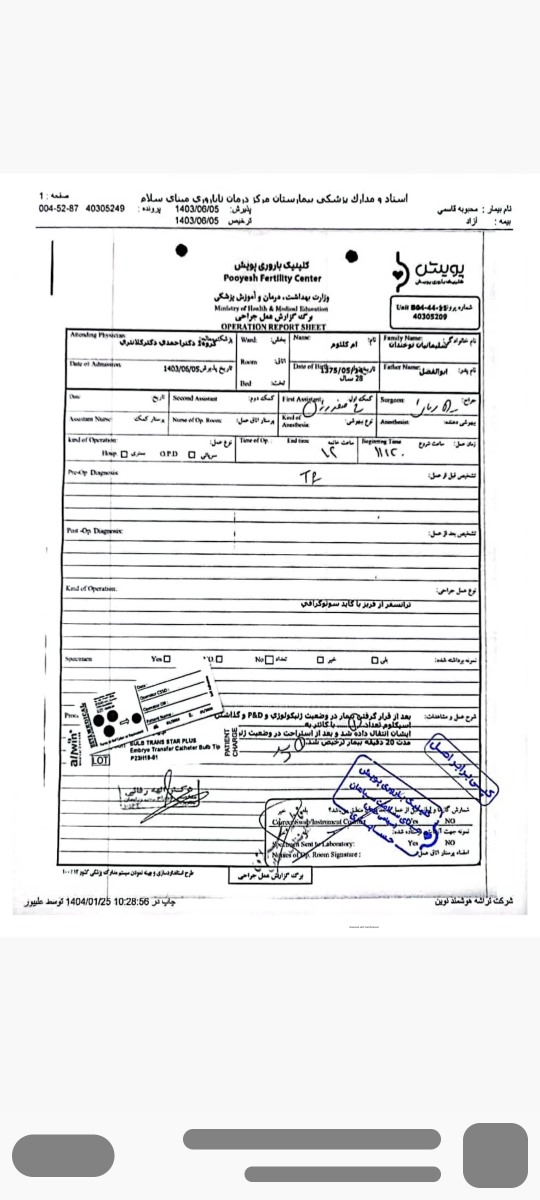 اسناد و مدارک پزشکی بیمارستان مرکز درمان ناباروری مینای سلام
صفحه : 1
نام بیمار : محبوبه قاسمی
پذیرش: 1403/06/05
پرونده : 40305249 004-52-87
بیمه : آزاد
ترخیص 1403/06/05
پویش
کلینیک باروری پویش
کلینیک باروری پویش
Pooyesh Fertility Center
وزارت بهداشت، درمان و آموزش پزشکی
Ministry of Health & Medical Education
برگ گزارش عمل جراحی
OPERATION REPORT SHEET
شماره پرونده
40305209
Attending Physician:
دکتر احمدی دکتر کلانتری
Ward: بخش:
Name: نام: ام کلثوم
Family Name: نام خانوادگی:
سلیمانیان نوخندان
Date of Admission: تاریخ پذیرش: 1403/06/05
Room اتاق:
Bed تخت:
Date of Birth
28 سال
Father Name: نام پدر: ابوالفضل
Date: تاریخ:
Second Assistant کمک دوم:
First Assistant: کمک اول:
Surgeon: جراح:
Assistant Nurse: پرستار کمک:
Nurse of Op. Room: پرستار اتاق عمل:
Kind of Anesthesia: نوع بیهوشی:
Anesthesist: بیهوشی دهنده:
Kind of Operation: نوع عمل:
Hosp. بستری
O.P.D سرپائی
Time of Op.
End time ساعت خاتمه
۱۲
Beginning Time ساعت شروع
زمان عمل:
Pre-Op. Diagnosis: تشخیص قبل از عمل:
Post-Op. Diagnosis: تشخیص بعد از عمل:
Kind of Operation: نوع عمل جراحی:
ترانسفر از فریز با گاید سونوگرافی
Specimen
Yes
No تعداد
خیر
بلی
نمونه برداشته شده:
شرح عمل و مشاهدات:
بعد از قرار گرفتن بیمار در وضعیت ژنیکولوژی و P&D و گذاشتن
اسپکلوم تعداد 1 با کاتتر به
ایشان انتقال داده شد و بعد از استراحت در وضعیت
مدت 20 دقیقه بیمار ترخیص شد.
Date:
Patient Name:
allwin
LOT
BULB TRANS STAR PLUS
Embryo Transfer Catheter Bulb Tip
P23H19-01
PATIENT CHARGE
کپی برابر اصل
کلینیک باروری پویش
حسابداری
Yes NO
Specimen Sent to Laboratory: Yes NO
Nurses of Op. Room Signature: امضاء پرستار اتاق عمل:
برگ گزارش عمل جراحی
چاپ در 10:28:56 1404/01/25 توسط طبیپور
شرکت تراشه هوشمند نوین